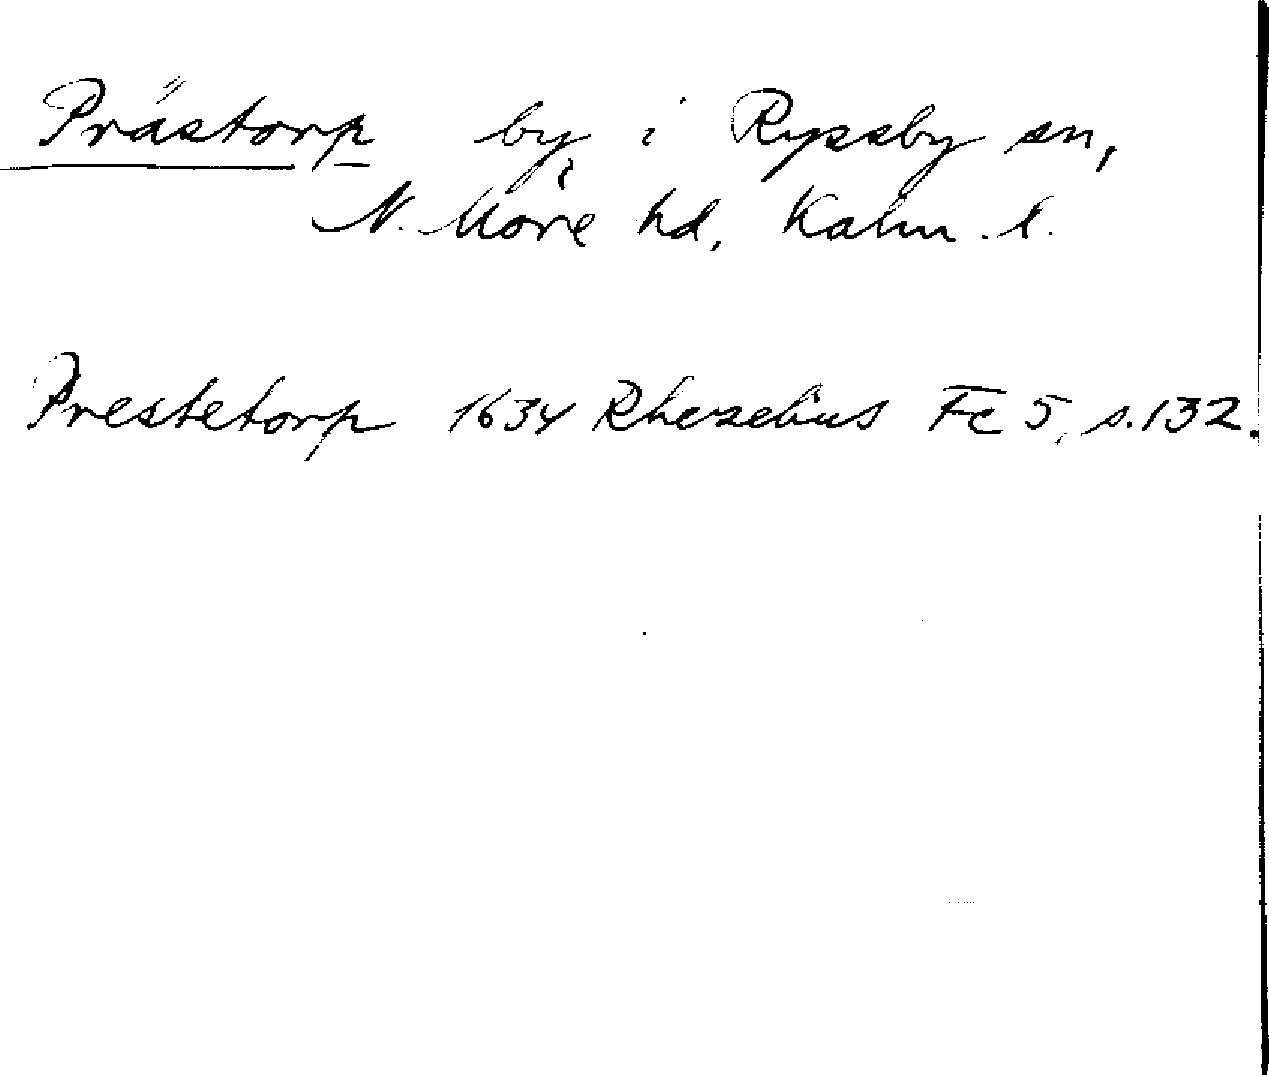 Prästorp by i Ryssby sn,
N. Möre hd, Kalm. l.
Prestetorp 1634 Rhezelius Fc 5, s. 132.